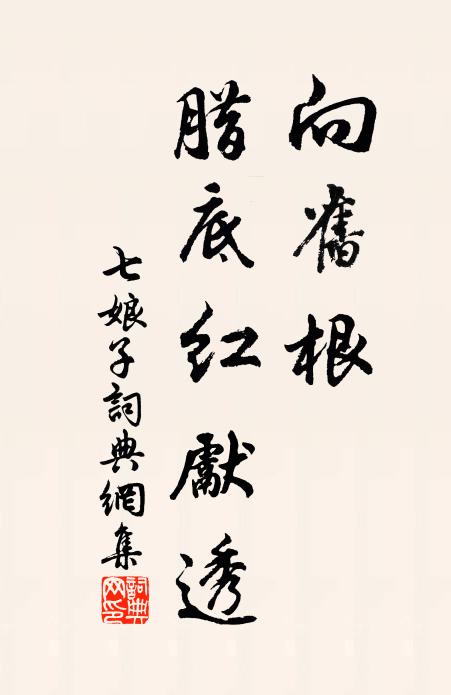 向舊根
腊底紅獻透
七娘子詞典網集
詞典网印